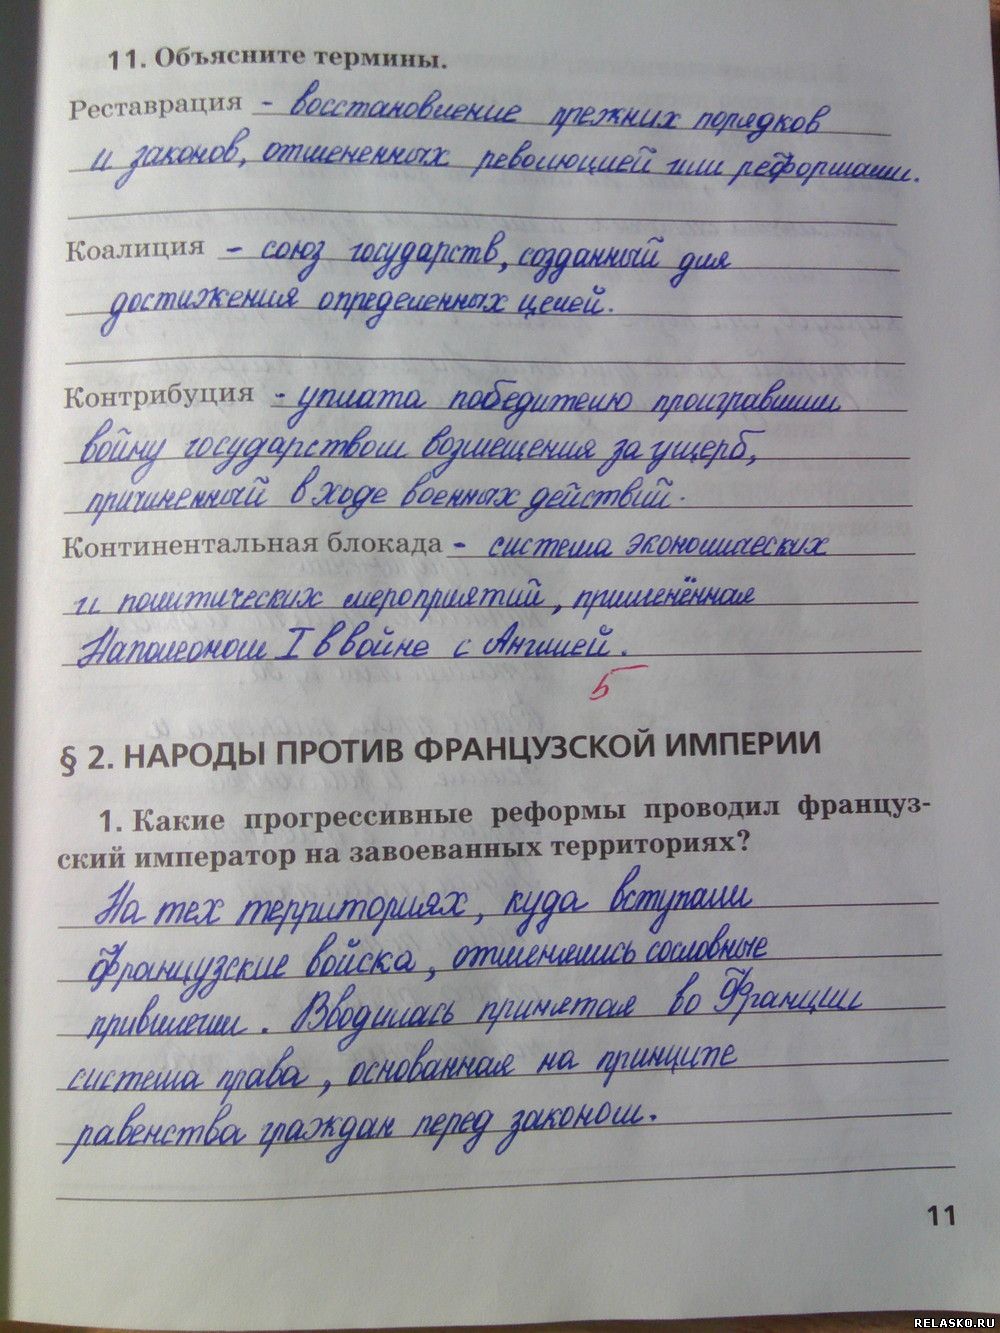 11. Объясните термины.
Реставрация - восстановление прежних порядков
и законов, отмененных революцией или реформами.
Коалиция - союз государств, созданный для
достижения определенных целей.
Контрибуция - уплата победителю проигравшим
войну государством возмещения за ущерб,
причиненный в ходе военных действий.
Континентальная блокада - система экономических
и политических мероприятий, применённая
Наполеоном I в войне с Англией.
5
§ 2. НАРОДЫ ПРОТИВ ФРАНЦУЗСКОЙ ИМПЕРИИ
1. Какие прогрессивные реформы проводил француз-
ский император на завоеванных территориях?
На тех территориях, куда вступали
французские войска, отменялись сословные
привилегии. Вводилась принятая во Франции
система права, основанная на принципе
равенства граждан перед законом.
11
RELASKO.RU